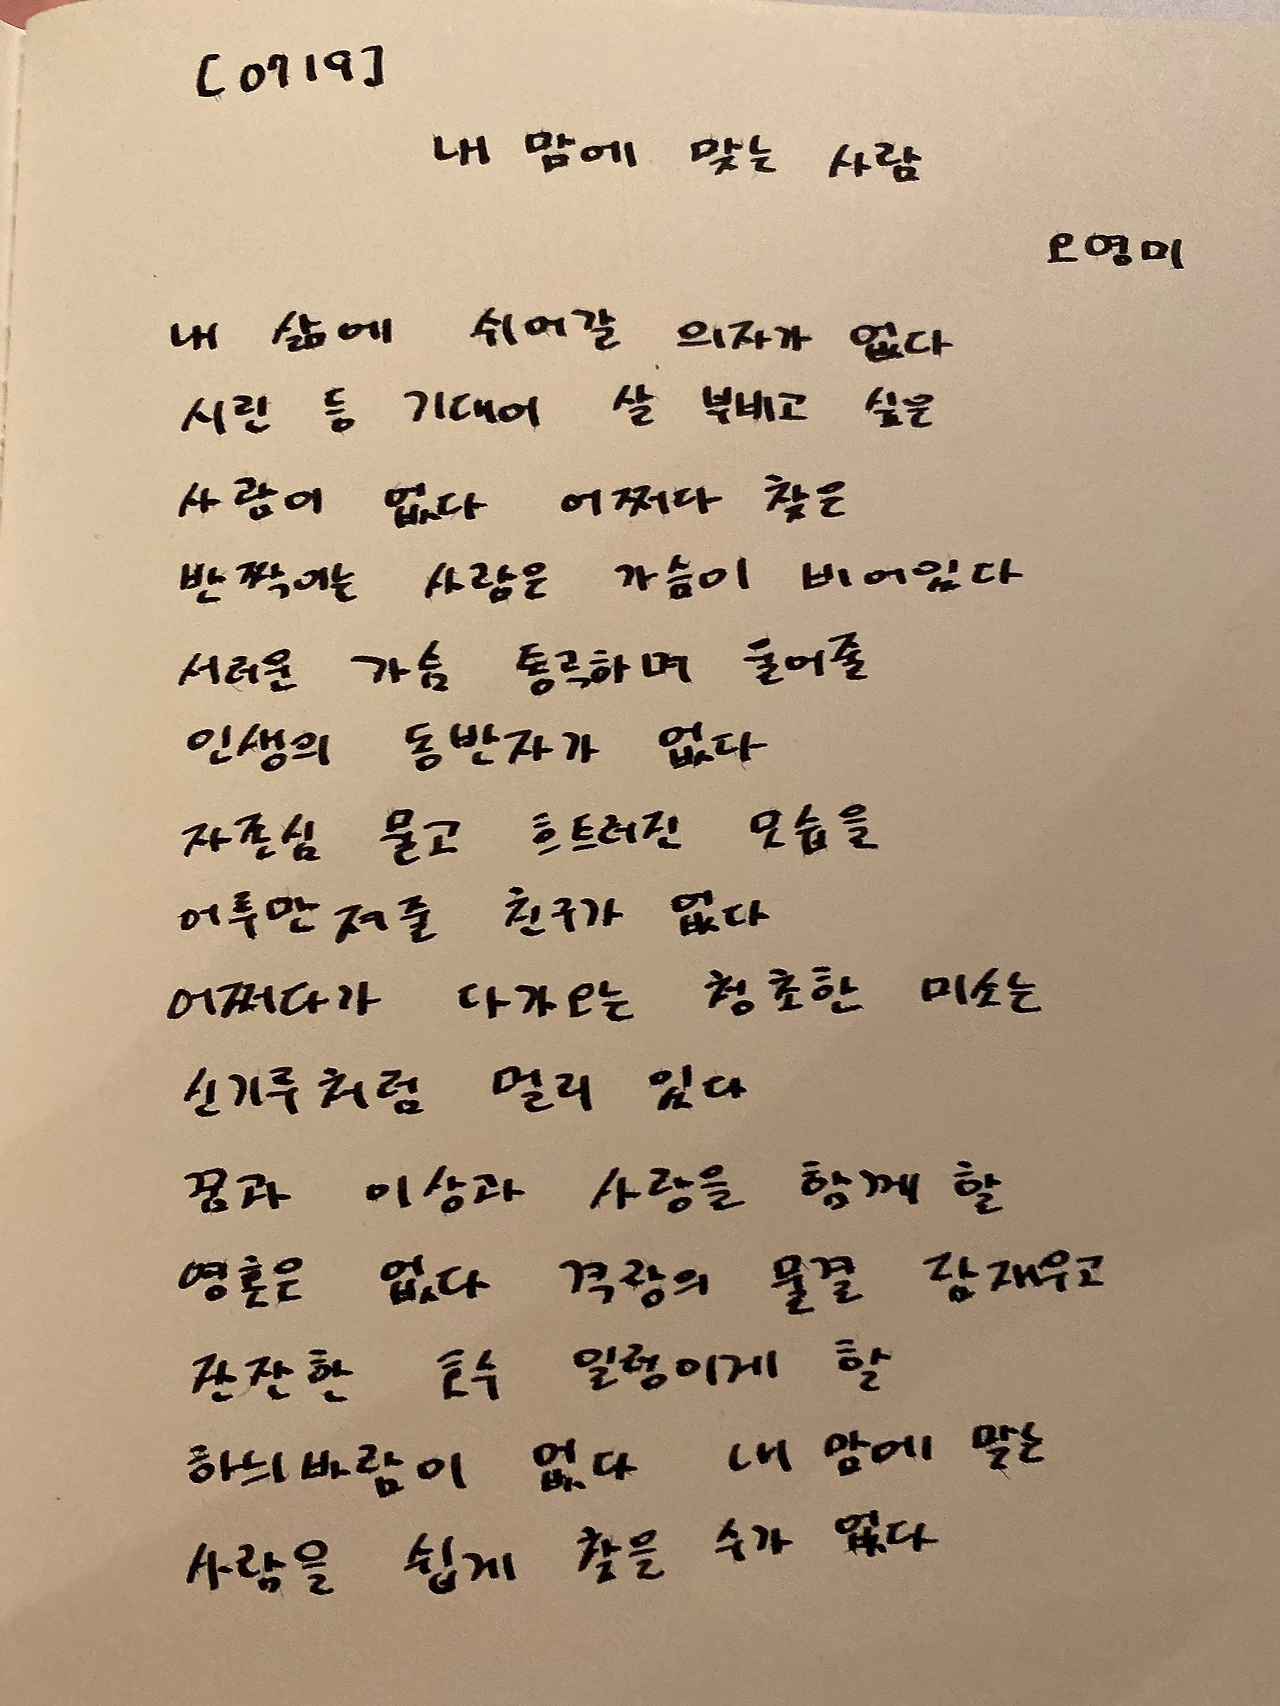 [0719]
내 맘에 맞는 사람
오영미
내 삶에 쉬어갈 의자가 없다
시린 등 기대어 살 부비고 싶은
사람이 없다 어쩌다 찾은
반짝이는 사람은 가슴이 비어있다
서러운 가슴 통곡하며 울어줄
인생의 동반자가 없다
자존심 물고 흐트러진 모습을
어루만져줄 친구가 없다
어쩌다가 다가오는 청초한 미소는
신기루처럼 멀리 있다
꿈과 이상과 사랑을 함께 할
영혼은 없다 격랑의 물결 잠재우고
잔잔한 호수 일렁이게 할
하늬바람이 없다 내 맘에 맞는
사람을 쉽게 찾을 수가 없다